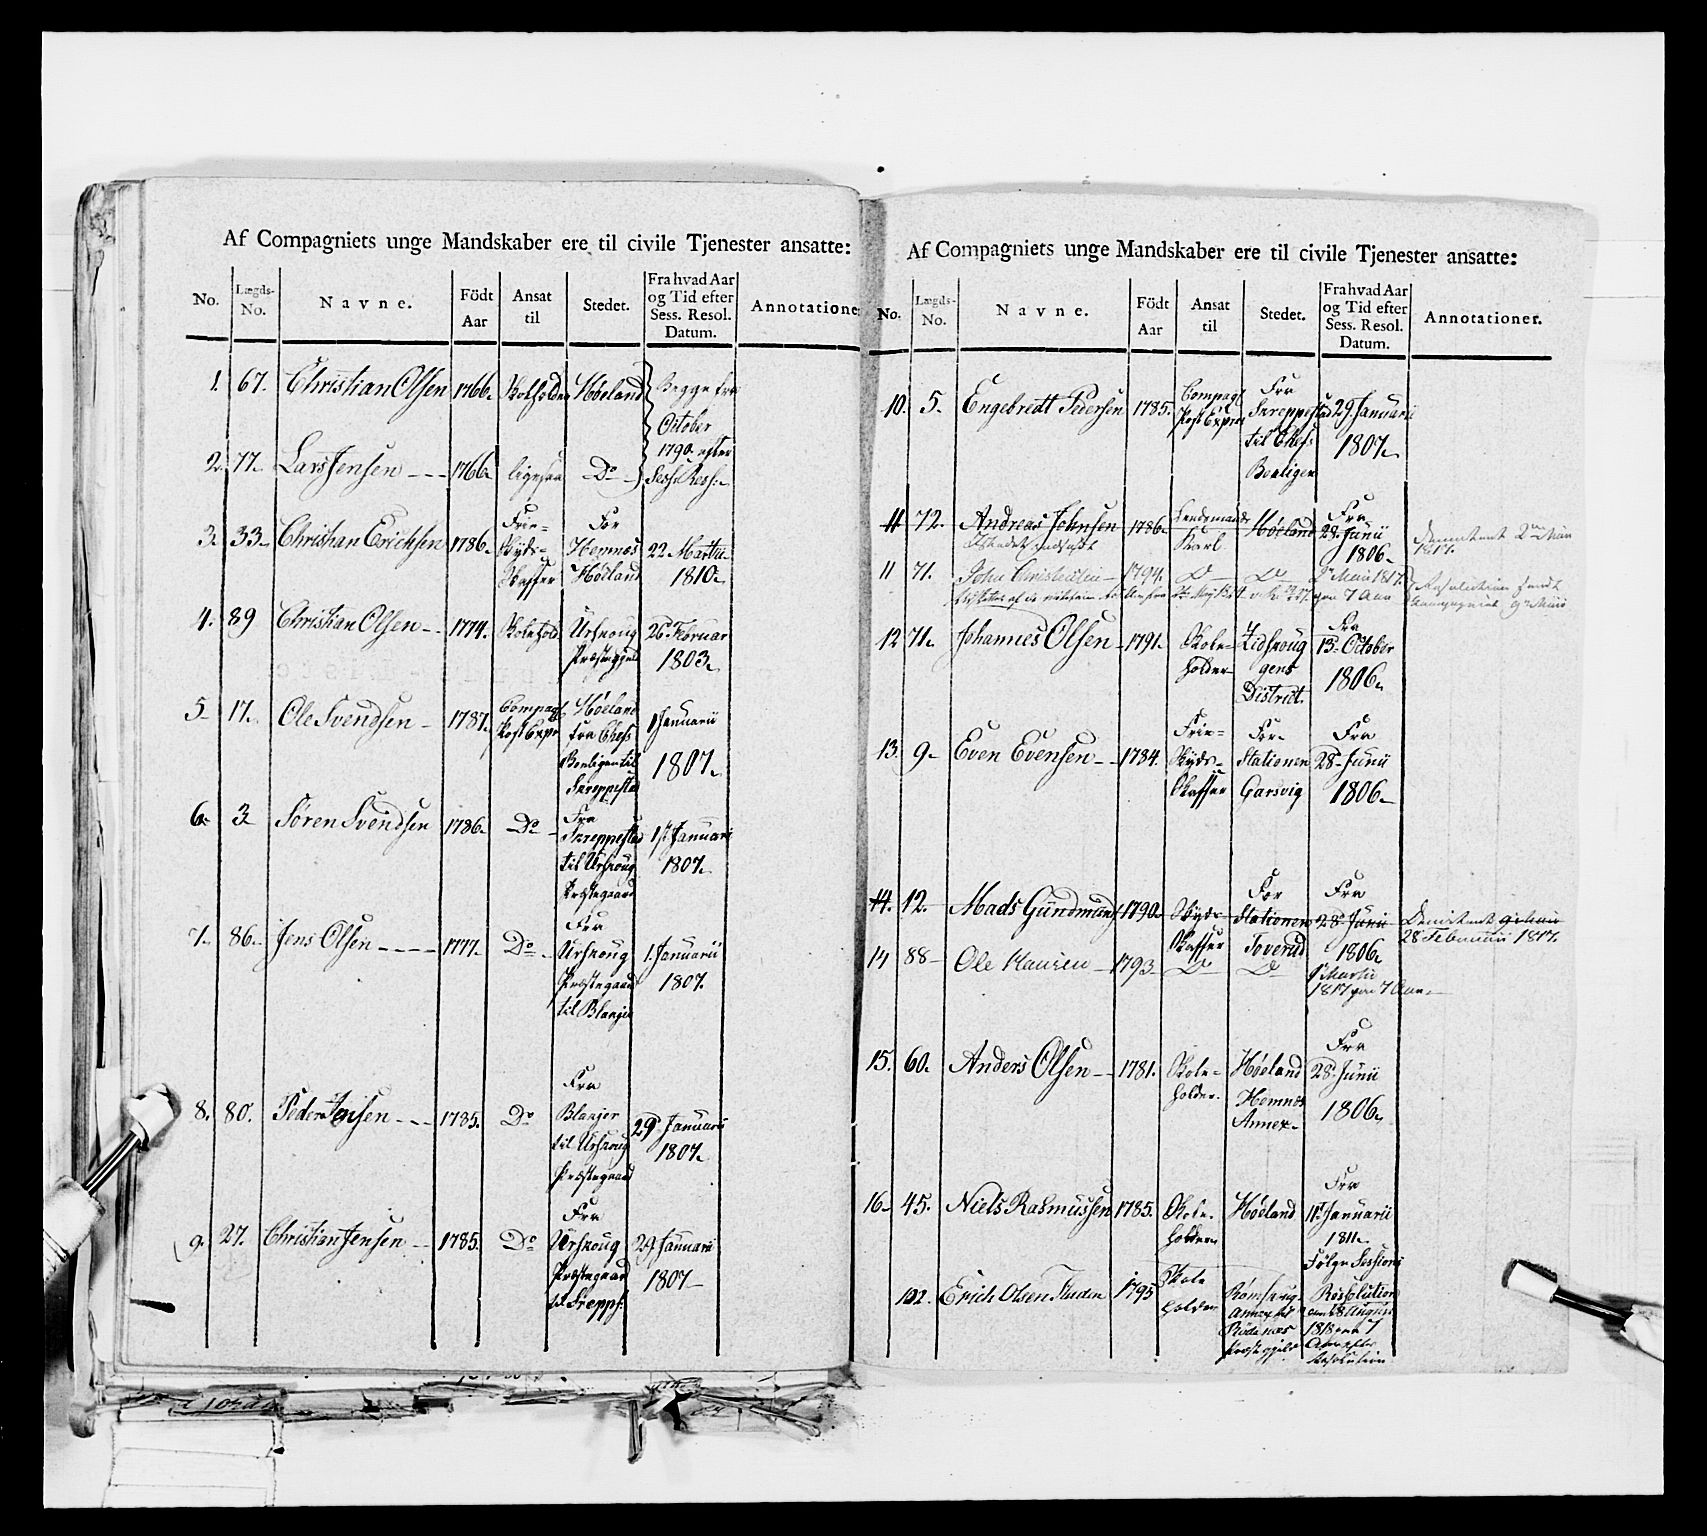 Af Compagniets unge Mandskaber ere til civile Tjenester ansatte:
No. Lægds-No. Navne. Födt Aar Ansat til Stedet. Fra hvad Aar og Tid efter Sess. Resol. Datum. Annotatione
1. 67. Christian Olsen 1766. Skolholder Höeland Begge fra
October
1790 efter
2. 77. Lars Jensen 1766 ligesaa Do Sess: Ress:
3. 33. Christian Erichsen 1786. Frie-
Skyds-
Skaffer For
Hemnes
Höeland 22 Martii
1810.
4. 89 Christian Olsen 1774. Skolehold Urskoug
Præstegjeld 26 Februar
1803.
5. 17. Ole Svendsen 1787. Compag
Post Expr Höeland
fra Chefs
Boeligen til
Skreppestad 1 Januarii
1807.
6. 3. Sören Svendsen 1786. Do Fra
Skreppestad
til Urskoug
Præstegaard 1st Januari
1807.
7. 86. Jens Olsen 1777. Do Fra
Urskoug
Præstegaard
til Blanjer 1. Januarii
1807.
8. 80. Peder Jensen 1785. Do Fra
Blanjer
til Urskoug
Præstegaard 29 Januarii
1807.
9. 27. Christian Jensen 1785. Do Fra
Urskoug
Præstegaard
til Skrepps: 29 Januari
1807
Af Compagniets unge Mandskaber ere til civile Tjenester ansatte:
No. Lægds-No. Navne. Födt Aar Ansat til Stedet. Fra hvad Aar og Tid efter Sess. Resol. Datum. Annotationer.
10. 5. Engebredt Pedersen 1785. Compag
Post Expres Fra
Skreppestad
til Chefs
Boeligen 29 Januarii
1807.
11. 72. Andreas Johnsen 1786. Lensmands
Karl Höeland Fra
28 Junii
1806. 1817.
11 71. John Christensen 1794. Do Do Maii 1817.
paa 7 Aar
12 71. Johannes Olsen 1791. Skole-
holder Urskoug
gens
District. Fra
13 October
1806.
13. 9. Even Evensen 1784. Frie-
Skyds-
Skaffer For
Stationen
Garsvig Fra
28 Junii
1806.
14. 12. Mads Gundmunds 1790. Skyds
Skaffer For
Stationen
Toverud Fra
28 Junii
1806. 28 Februari 1817.
14 88 Ole Hansen 1793 Do Do Martii
1817 paa 7 Aar
15. 60. Anders Olsen 1781. Skole-
holder Höeland
Hemnes
Annex Fra
28 Junii
1806.
16. 45. Niels Rasmussen 1785. Skole-
holder Höeland Fra
11 Januarii
1811.
Fölge Sessions
102. Erich Olsen 1795 Skole
holder
Rödenæs
Præstegjeld Resolution
August
1818 paa 7
Aar efter
Resolution